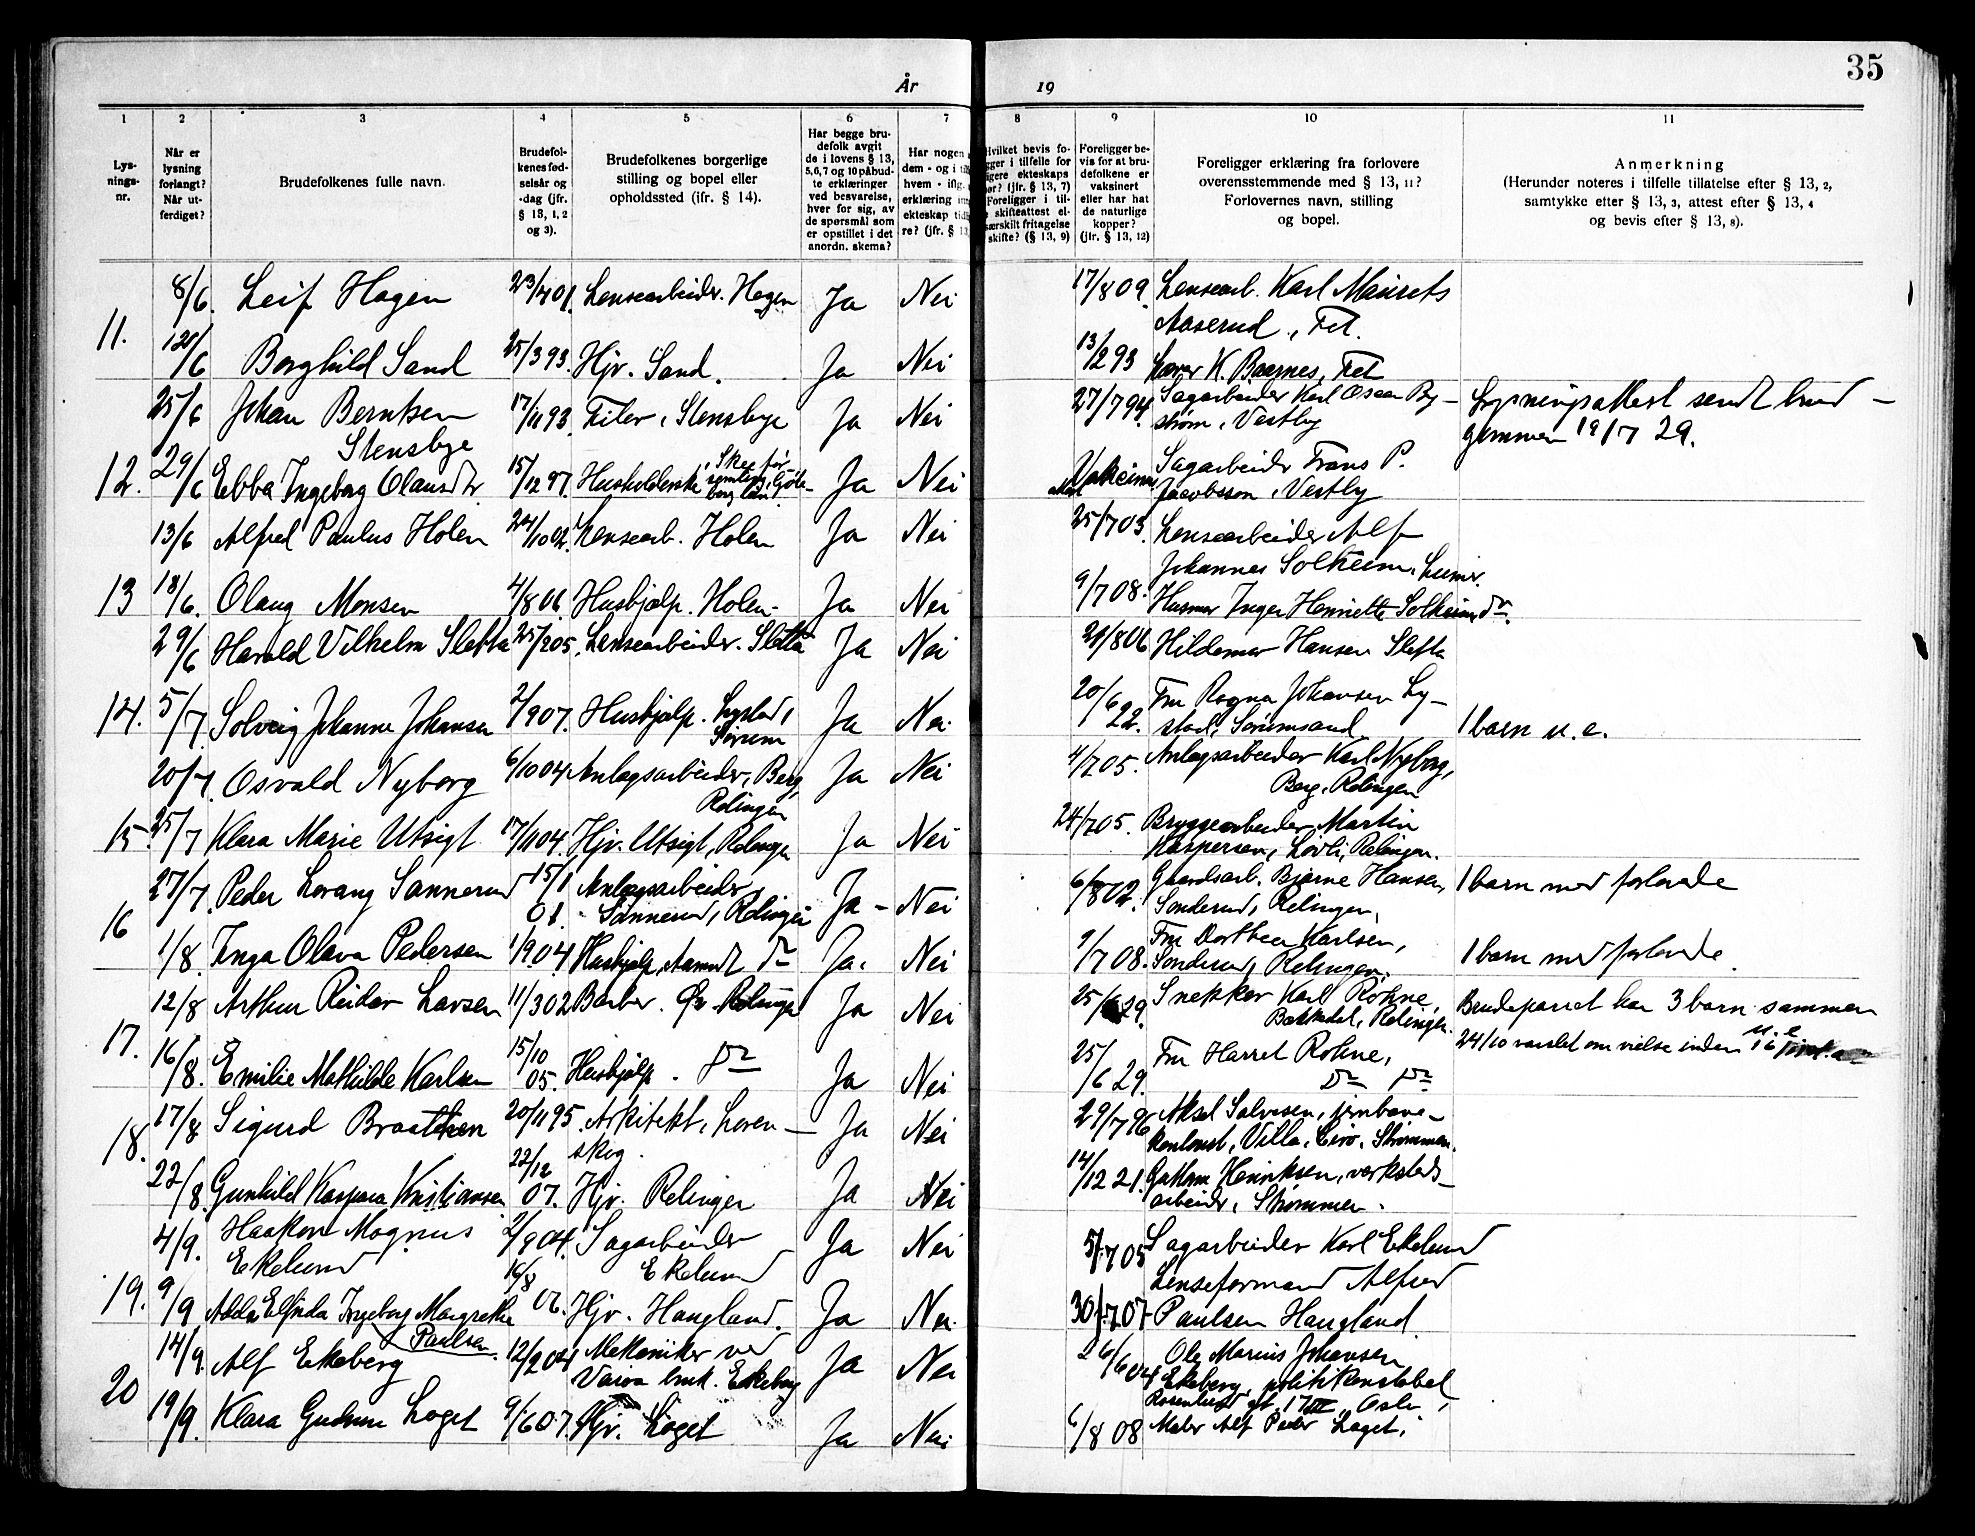 35
År 19
1 2 3 4 5 6 7 8 9 10 11
Lys-
nings-
nr.
Når er
lysning
forlangt?
Når ut-
ferdiget?
Brudefolkenes fulle navn.
Brudefol-
kenes fød-
selsår og
-dag (jfr.
§ 13, 1, 2
og 3).
Brudefolkenes borgerlige
stilling og bopel eller
opholdssted (jfr. § 14).
Har begge bru-
defolk avgit
de i lovens § 13,
5,6,7 og 10 påbud-
te erklæringer
ved besvarelse,
hver for sig, av
de spørsmål som
er opstillet i det
anordn. skema?
Har nogen
dem - og i
hvem - iflg.
erklæring
ekteskap
re? (jfr. §
Hvilket bevis fo-
gger i tilfelle for
igere ekteskaps
or? (jfr. § 13, 7)
Foreligger i til-
e skifteattest el-
særskilt fritagelse
skifte? (§ 13, 9)
Foreligger be-
vis for at bru-
defolkene er
vaksinert
eller har hat
de naturlige
kopper?
(jfr. § 13, 12)
Foreligger erklæring fra forlovere
overensstemmende med § 13, 11?
Forlovernes navn, stilling
og bopel.
Anmerkning
(Herunder noteres i tilfelle tillatelse efter § 13, 2,
samtykke efter § 13, 3, attest efter § 13, 4
og bevis efter § 13, 8).
11. 8/6. Leif Hagen 23/7 01. Lensearbeider. Hagen Ja Nei 17/8 09. Lensearb. Karl Maurits
Aaserud, Fet.
/6 Borghild Sand 25/3 93. Hjv. Sand. Ja Nei 13/2 93 K. Baernes, Fet
25/6 Johan Berntsen 17/11 93. Filer, Stensbye Ja Nei 27/7 94. Sagarbeider Karl Oscar By-
Stensbye strøm, Vestby
Lysningsattest sendt brud-
gommen 19/7 29.
12. 29/6 Ebba Ingeborg Olausdtr. 15/12 97. Husholderske, Ja Nei Sagarbeider Frans P.
Jacobsson, Vestby
13/6 Alfred Paulus Holen 24/10 02. Lensearb. Holen Ja Nei 25/7 03. Lensearbeider Alf
Johannes Solheim,
13 18/6. Olaug Monsen 4/8 06. Husbjælp. Holen. Ja Nei 9/7 08. Inger Henriette Solheim, do.
29/6 Harald Vilhelm Sletta 25/2 05. Lensearbeider. Sletta Ja Nei 21/8 06 Hildemar Hansen Sletta
14. 5/7. Solveig Johanne Johansen 2/9 07. Husbjælp. Lystad, Ja Nei. 20/6 22. Fru Ragna Johansen Ly-
Sørum stad, Sørumsand
1 barn u.e.
20/7. Osvald Nyborg 6/10 04 Anlægsarbeider, Berg, Ja Nei 4/7 05. Anlægsarbeider Karl Nyborg,
Rælingen Berg, Rælingen
15. 25/7 Klara Marie Utsigt 17/11 04. Hjv. Utsigt, Rælingen Ja Nei 24/7 05. Bryggearbeider Martin
Kaspersen, Løvli, Rælingen.
27/7. Peder Lorang Sannerud 15/1 01. Anlægsarbeider, Ja - Nei 6/8 02. Gaardsarb. Bjarne Hansen,
Sannerud, Rælingen Sønderud, Rælingen,
1 barn med forlovede
16 1/8. Inga Olava Pedersen 1/9 04 Husbjælp, do Ja. Nei 9/7 08. Fru Dorthea Karlsen,
Sønderud, Rælingen.
1 barn med forlovede
12/8 Arthur Reidar Larsen 11/3 02 Barber. Rælingen Ja Nei 25/6 29. Snekker Karl Rohne,
Bakkedal, Rælingen.
Brudeparret har 3 barn sammen
u.e.
17. 16/8. Emilie Mathilde Karlsen 15/10 05. Husbjælp. do Ja Nei 25/6 29. Fru Harret Rohne,
do do
24/10 varslet om vielse inden
18. 17/8 Sigurd Braathen 20/11 95. Arkitekt, Loren- Ja Nei 29/7 96 Aksel Salvesen, jernbane-
skog. kontorist, Villa, Strømmen.
22/8. Gunhild Kaspara Kristiansen 22/12 07. Hjv. Rælingen Ja Nei 14/12 21. Henriksen, verksteds-
arbeider, Strømmen.
4/9. Haakon Magnus 2/9 04. Sagarbeider Ja Nei 5/7 05 Sagarbeider Karl Ekelund
Ekelund Ekelund
19. 9/9 Adda Elfrida Ingeborg Margrethe 16/8 06. Hjv. Haugland. Ja Nei. 30/7 07 Lenseformand Alfred
Paulsen Paulsen Haugland
14/9. Alf Ekeberg 12/2 04 Mekaniker ved Ja Nei 26/6 04 Ole Marius Johansen
bruk. Ekeberg Ekeberg, politikonstabel
Oslo,
20 19/9. Klara Gudrun Laget 9/6 07. Hjv. Laget Ja Nei 6/8 08 Maler Alf Peder Laget,